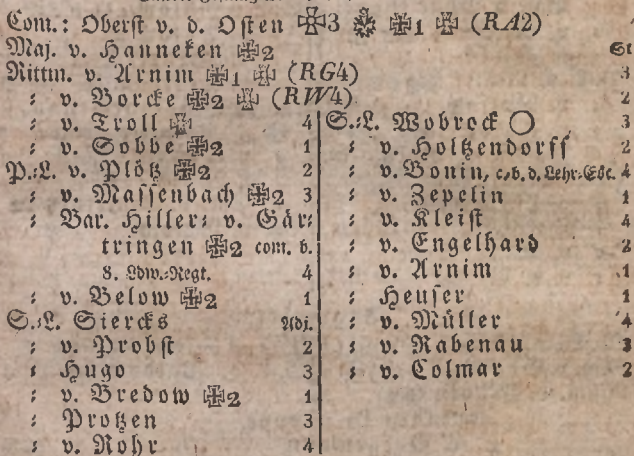 Com.: Oberst v. d. Osten ✠3 ✠1 ✠ (RA2)
Maj. v. Hanneken ✠2
St
Rittm. v. Arnim ✠1 ✠ (RG4) 3
: v. Borcke ✠2 ✠ (RW4) 2
: v. Troll ✠ 4
: v. Gobbe ✠2 1
P.:L. v. Plötz ✠2 2
: v. Massenbach ✠2 3
: Bar. Hiller: v. Gär:
tringen ✠2 com. b.
8. Ldw.:Regt. 4
: v. Below ✠2 1
S.:L. Siercks Adj.
: v. Probst 2
: Hugo 3
: v. Bredow ✠2 1
: Protzen 3
: v. Rohr 4
S.:L. Wobrock ◯ 3
: v. Holtzendorff 2
: v. Bonin, c. b. d. Lehr:Esc. 4
: v. Zepelin 1
: v. Kleist 4
: v. Engelhard 2
: v. Arnim 1
: Heuser 1
: v. Müller 4
: v. Rabenau 3
: v. Colmar 2